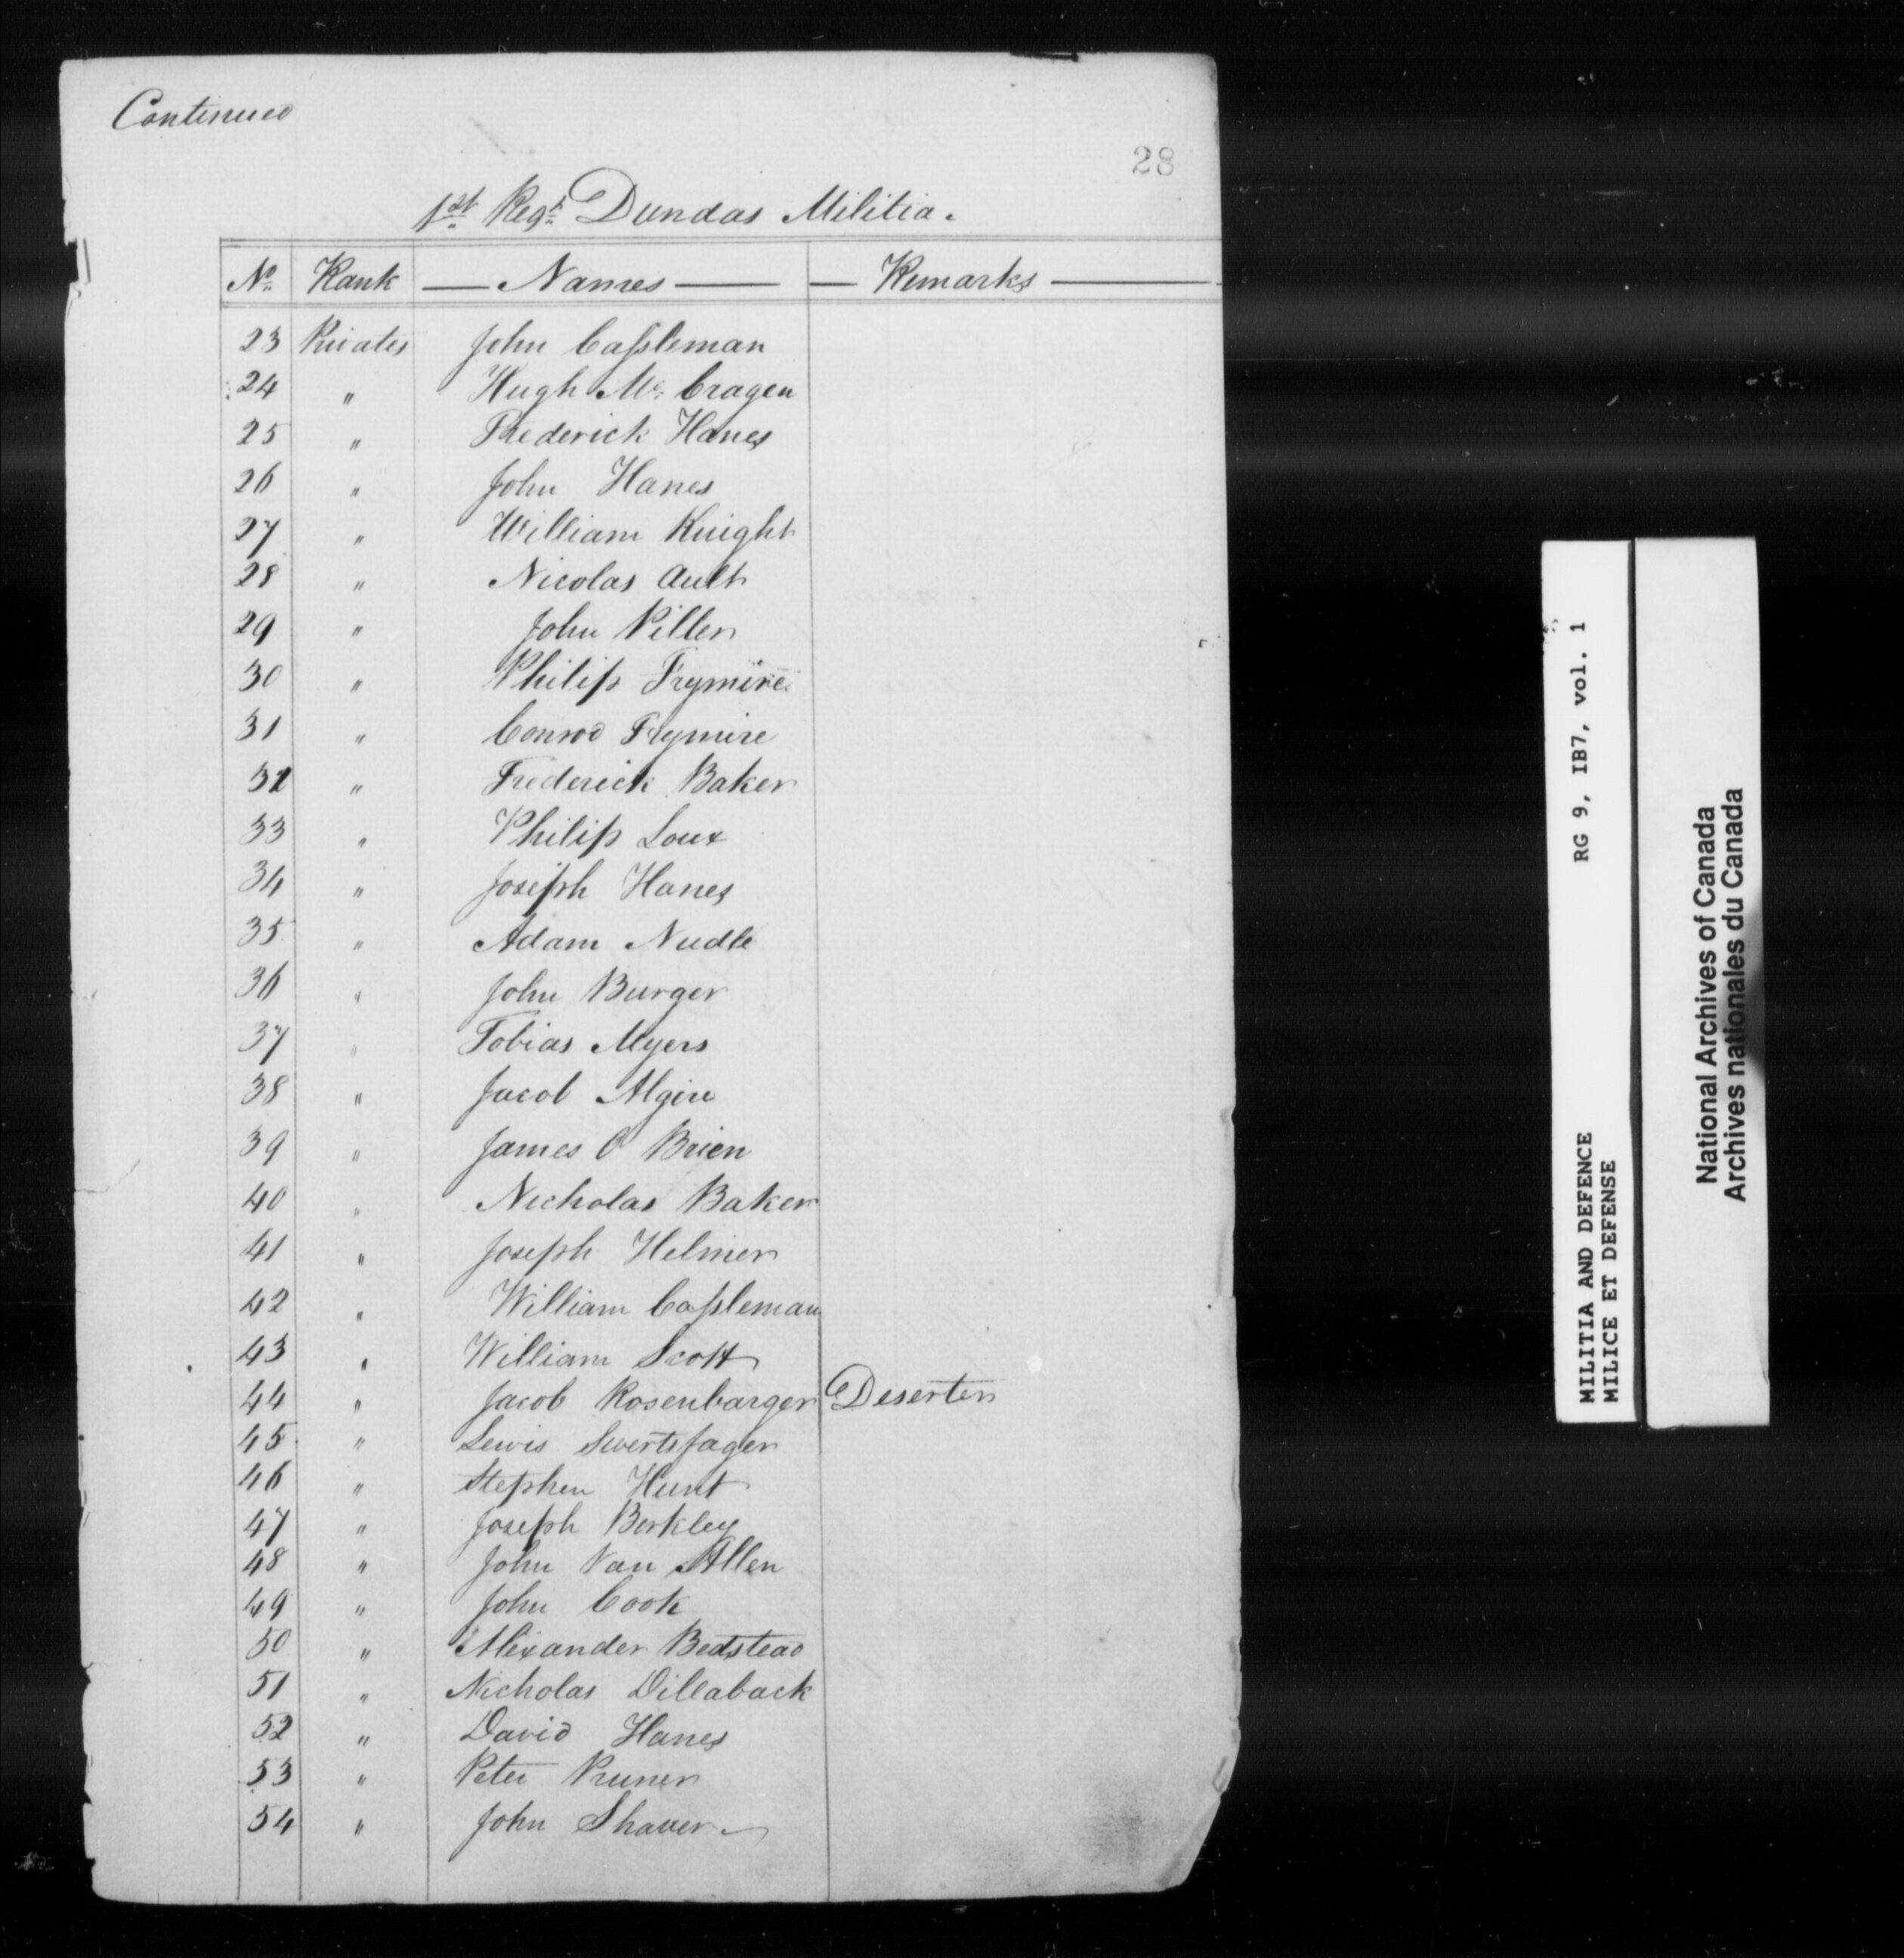 Continued
28
1st Regt Dundas Militia.
No Rank Names Remarks
23 Privates John Cassleman
24 " Hugh Mc Cragen
25 " Frederick Hanes
26 " John Hanes
27 " William Knight
28 " Nicolas Ault
29 " John Piller
30 " Philip Frymire
31 " Conrod Frymire
32 " Frederick Baker
33 " Philip Loux
34 " Joseph Hanes
35 " Adam Nudle
36 " John Burger
37 " Tobias Myers
38 " Jacob Algire
39 " James O Brien
40 " Nicholas Baker
41 " Joseph Helmer
42 " William Cassleman
43 " William Scott
44 " Jacob Rosenbarger Deserter
45 " Lewis Swertsfager
46 " Stephen Hunt
47 " Joseph Berkley
48 " John Van Allen
49 " John Cook
50 " Alexander Bedstead
51 " Nicholas Dillaback
52 " David Hanes
53 " Peter Pruner
54 " John Shaver
MILITIA AND DEFENCE RG 9, IB7, vol. 1
MILICE ET DEFENSE
National Archives of Canada
Archives nationales du Canada